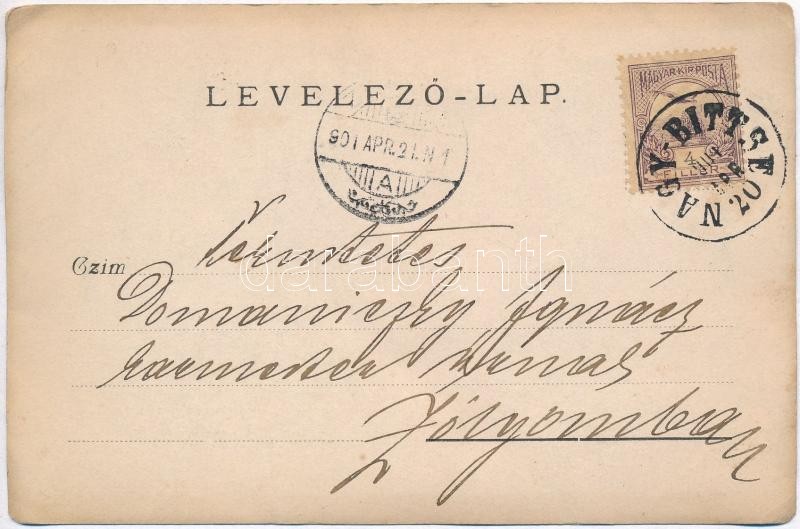 LEVELEZŐ-LAP.
MAGYAR KIR. POSTA
4
FILLÉR
NAGY-BITTSE
APR 20
901 APR. 21. N 1
A
Czim
Tekintetes
Domaniczky Ignácz
urnak
Zólyomban
darabanth